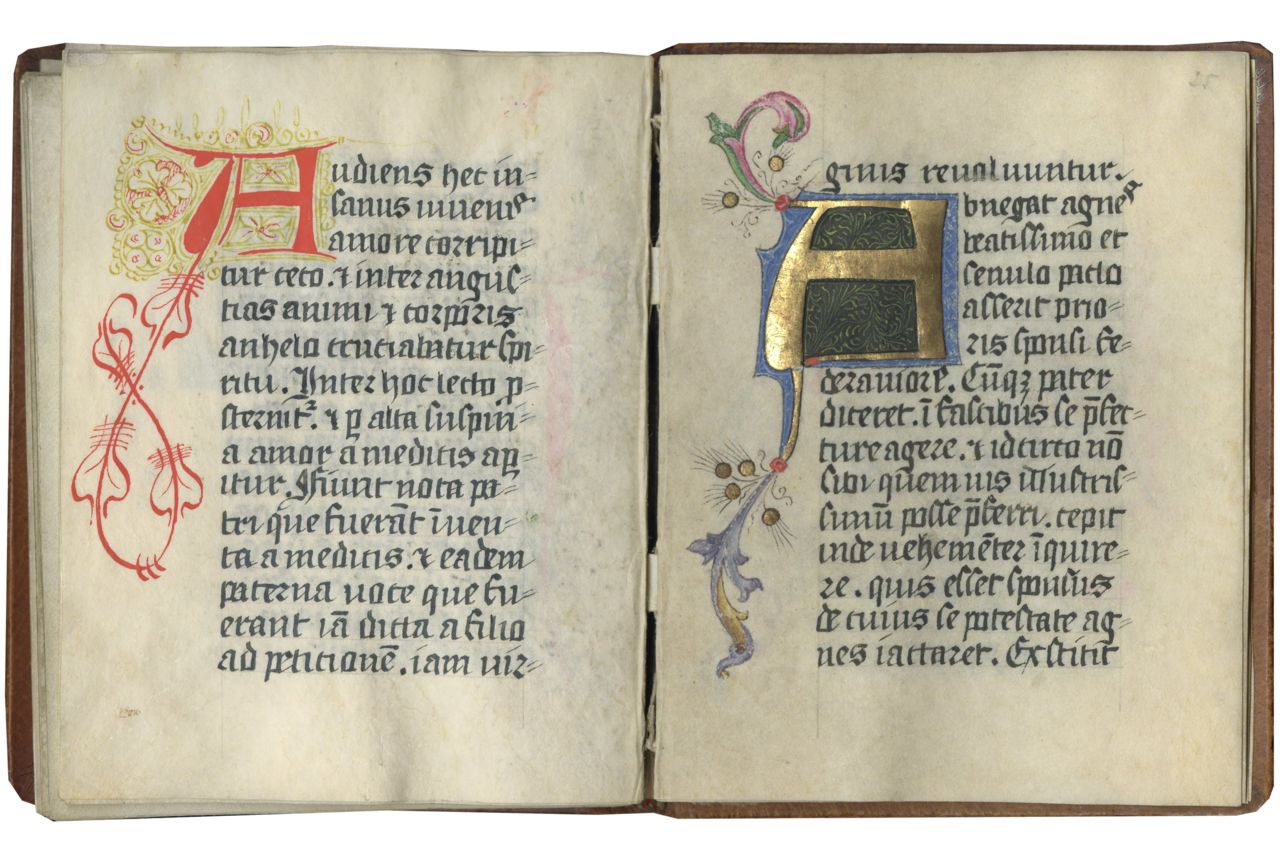 Audiens hec in=
sanus iuuenis
amore corripi=
tur ceco. ⁊ inter angus=
tias animi ⁊ corporis
anhelo cruciabatur spi=
ritu. Inter hoc lecto p̲=
sternit᷑. ⁊ p̲ alta suspiri=
a amor a medicis ap̲=
itur. Fiunt nota pa=
tri que fuerāt īuen=
ta a medicis. ⁊ eadem
paterna uoce que fu=
erant iā dicta a filio
ad peticionē. iam uir=
25
ginis reuoluuntur.
Abnegat agnes
beatissimo et
se nulo pacto
asserit prio=
ris sponsi fe=
dera uiolare. Cūqꝫ pater
diceret. ī fascibus se p̄fec=
ture agere. ⁊ idcirco nō
sibi quem uis illustris=
simū posse p̄ferri. cepit
inde uehemēter īquire=
re. quis esset sponsus
de cuius se potestate ag=
nes iactaret. Exstitit